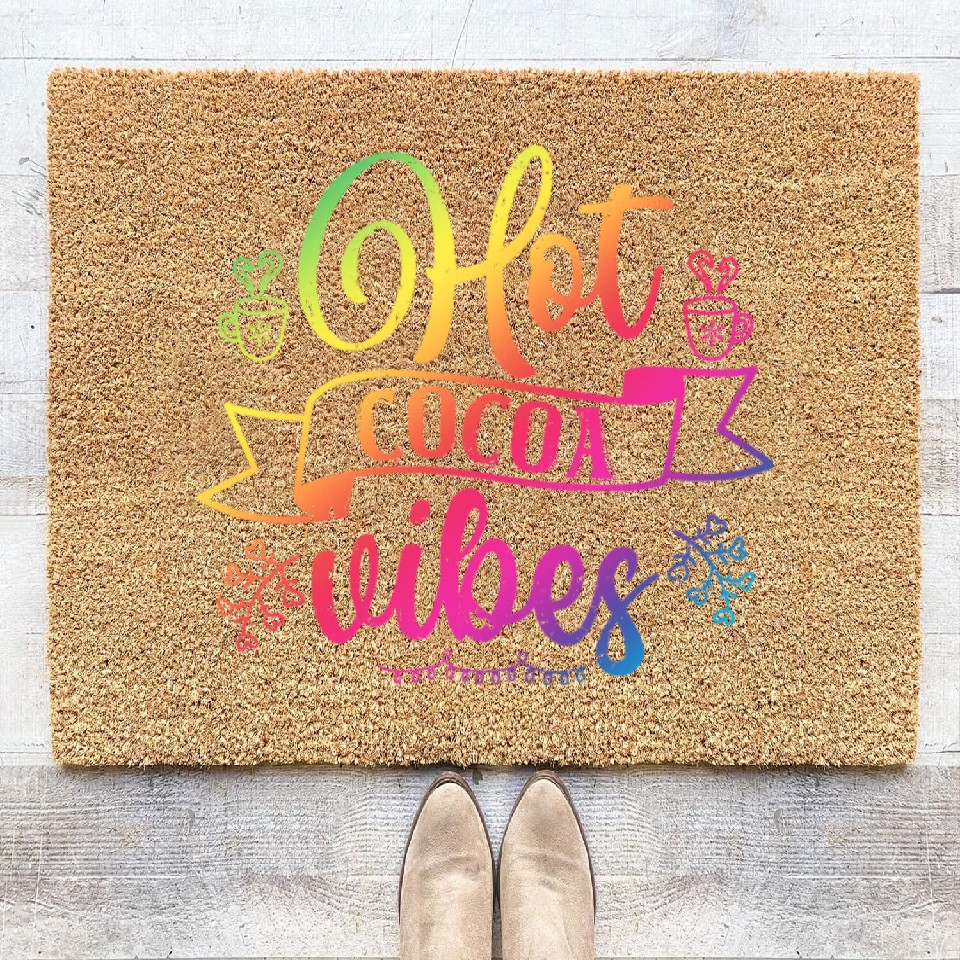 Hot
COCOA
vibes